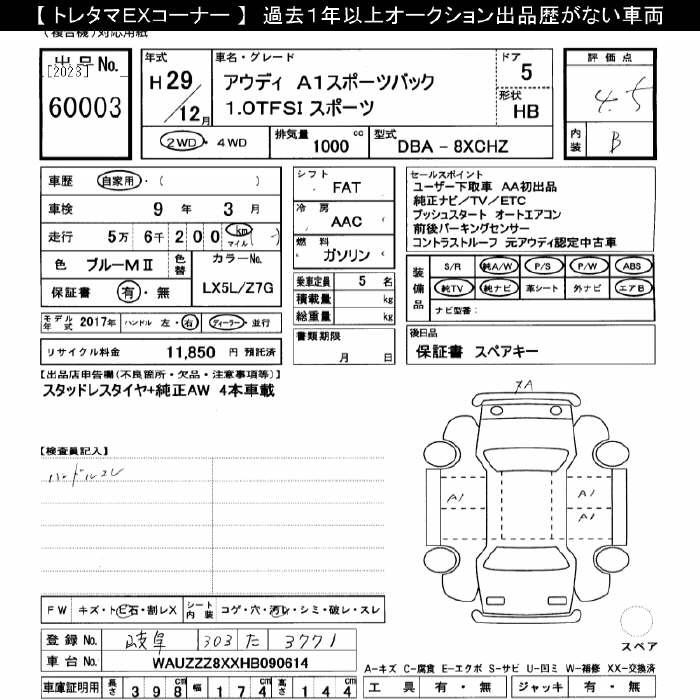 【 トレタマEXコーナー 】 過去１年以上オークション出品歴がない車両
(複合機)対応用紙
出品No.
[2023]
60003
年式
H 29
12月
車名・グレード
アウディ A1スポーツバック
1.0TFSI スポーツ
ドア
5
形状
HB
2WD・4WD
排気量
1000 cc
型式
DBA - 8XCHZ
評価点
4.5
内装
B
車歴 自家用・( )
車検 9年 3月
走行 5万 6千 200 km マイル
色 ブルーMⅡ
色替
カラーNo.
LX5L/Z7G
保証書 有・無
モデル年式 2017年 ハンドル 左・右 ディーラー・並行
リサイクル料金 11,850 円 預託済
シフト
FAT
冷房
AAC
燃料
ガソリン
乗車定員 5 名
積載量 kg
総重量 kg
書類期限
月 日
セールスポイント
ユーザー下取車 AA初出品
純正ナビ／TV／ETC
プッシュスタート オートエアコン
前後パーキングセンサー
コントラストルーフ 元アウディ認定中古車
装備品
S/R 純A/W P/S P/W ABS
純TV 純ナビ 革シート 外ナビ エアB
ナビ型番：
後日品
保証書 スペアキー
【出品店申告欄(不良箇所・欠品・注意事項等)】
スタッドレスタイヤ+純正AW 4本車載
【検査員記入】
ハンドルスレ
XA
A1
A1
A1
FW キズ・トビ石・割レX シート内装 コゲ・穴・汚レ・シミ・破レ・スレ
登録No. 岐阜 303 た 3771
車台No. WAUZZZ8XXHB090614
車庫証明用 長さ 398cm 幅 174cm 高さ 144cm
スペア
A-キズ C-腐食 E-エクボ S-サビ U-凹ミ W-補修 XX-交換済
工具 有・無 ジャッキ 有・無